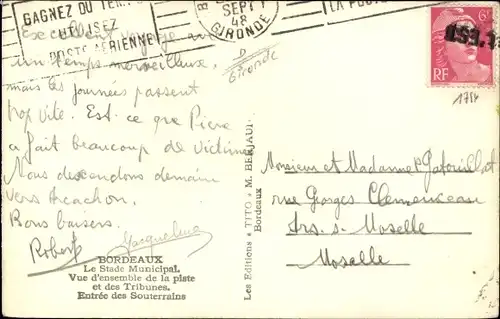 GAGNEZ DU TEM
UTILISEZ
POSTE AÉRIENNE
SEPT
48
GIRONDE
LA POST
6F
RF
Gironde
Excellent voyage
un temps merveilleux,
mais les journées passent
trop vite. Est ce que Piere
a fait beaucoup de victimes
Nous descendons demain
vers Arcachon.
Bons baisers.
Robert Jacqueline
BORDEAUX
Le Stade Municipal.
Vue d'ensemble de la piste
et des Tribunes.
Entrée des Souterrains
Les Editions « TITO » M. BERJAUD
Bordeaux
Monsieur et Madame
rue Georges Clemenceau
Ars. s- Moselle
Moselle